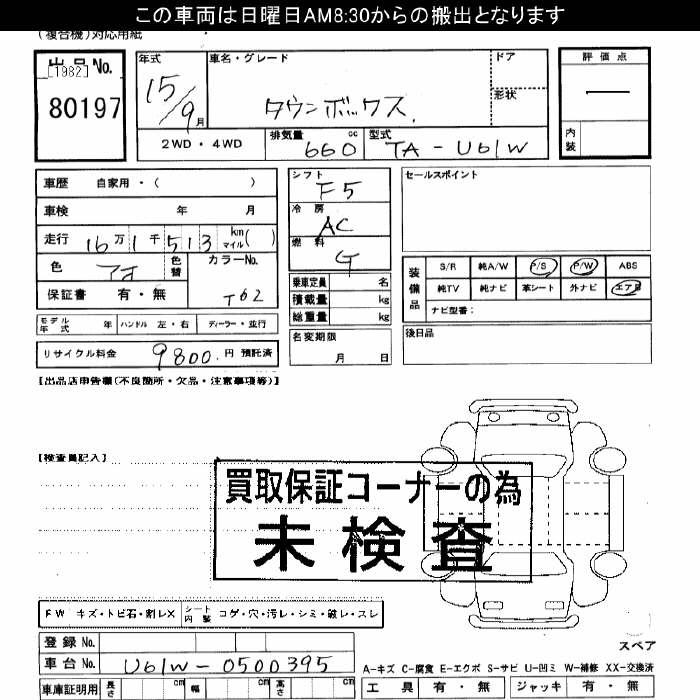 この車両は日曜日AM8:30からの搬出となります
(複合機)対応用紙
出品No.
[1982]
80197
年式
15/9月
車名・グレード
タウンボックス
ドア
形状
評価点
—
内装
2WD・4WD
排気量 660 cc
型式 TA-U61W
車歴 自家用・( )
車検 年 月
走行 16万1千513 km マイル( )
色 アオ 色替
カラーNo. T62
保証書 有・無
シフト F5
冷房 AC
燃料 G
セールスポイント
乗車定員 名
積載量 kg
総重量 kg
装備品
S/R 純A/W P/S P/W ABS
純TV 純ナビ 革シート 外ナビ エアB
ナビ型番:
モデル年式 年 ハンドル 左・右 ディーラー・並行
リサイクル料金 9800.円 預託済
名変期限
月 日
後日品
【出品店申告欄(不良箇所・欠品・注意事項等)】
【検査員記入】
買取保証コーナーの為
未検査
FW キズ・トビ石・割レX シート内装 コゲ・穴・汚レ・シミ・破レ・スレ
登録No.
車台No. U61W-0500395
スペア
A-キズ C-腐食 E-エクボ S-サビ U-凹ミ W-補修 XX-交換済
車庫証明用 長さ cm 幅 cm 高さ cm
工具 有・無 ジャッキ 有・無